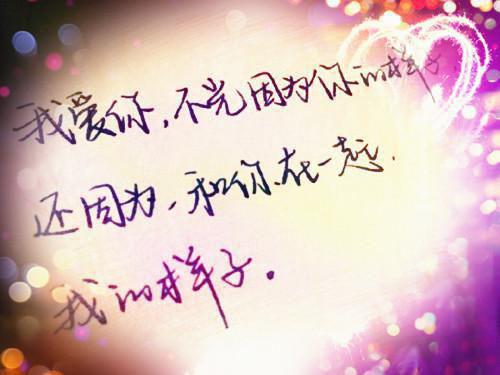 我爱你，不光因为你的样子
还因为，和你在一起，
我的样子。